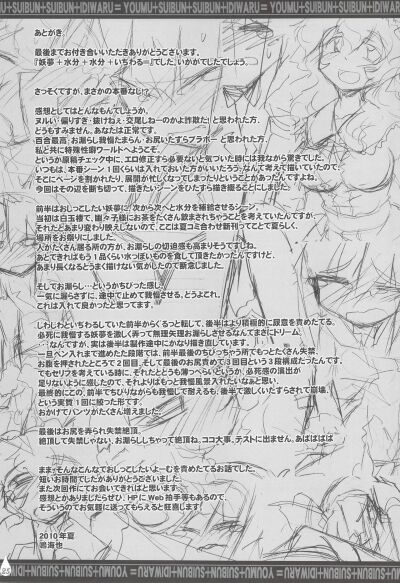 YOUMU+SUIBUN+SUIBUN+IDIWARU=YOUMU+SUIBUN+SUIBUN+IDIWARU
あとがき。
最後までお付き合いいただきありがとうございます。
『妖夢＋水分＋水分＋いぢわる＝』でした、いかがでしたでしょう。
さっそくですが、まさかの本番なし!?
感想としてはどんなもんでしょうか。
ヌルい・偏りすぎ・抜けねえ・交尾しねーのかよ詐欺だ！と思われた方、
どうもすみません、あなたは正常です。
百合最高・お漏らし我慢たまらん・お尻いたずらブラボーと思われた方、
私と共に特殊性癖ワールドへようこそ。
というか原稿チェック中に、エロ修正すら必要ないと気づいた時には我ながら驚きでした。
いつもは、本番シーン1回くらいは入れておいた方がいいだろう、なんて考えて描いていたので、
そこにページを割かれたり、展開が忙しくなってしまったりということがあったんですよね。
今回はその辺を断ち切って、描きたいシーンをひたすら描き綴ることにしました。
前半はおしっこしたい妖夢に、次から次へと水分を補給させるシーン。
当初は白玉楼で、幽々子様にお茶をたくさん飲まされちゃうことを考えていたんですが、
それだとあまり変わり映えしないので、ここは夏コミ合わせ新刊ってことで夏らしく、
場所をお祭りにしました。
人がたくさん居る所の方が、お漏らしの切迫感も高まりそうですしね。
あとできればもう1品くらい水っぽいものを食して頂きたかったんですけど、
あまり長くなるとうまく描けない気がしたので断念しました。
そしてお漏らし…というかちびった感じ。
一気に漏らさずに、途中で止めて我慢させる、どうよこれ。
これは入れて良かったと思ってます。
じわじわいぢわるしていた前半からくるっと転じて、後半はより積極的に尿意を責めてたる。
必死に我慢する妖夢を激しく弄って無理矢理お漏らしさせるなんてまさにドリーム。
…なんですが、実は後半は製作途中でかなり描き直しています。
一旦ペン入れまで進めてた段階では、前半最後のちびっちゃう所でもっとたくさん失禁、
お腹を押されたところで2回目、そして最後のお尻責めで3回目という3段構成だったんです。
でもセリフを考えている時に、それだとどうも薄っぺらいというか、必死感の演出が
足りないように感じたので、それよりはもっと我慢風景入れたいなあと思い、
最終的にこの、前半でちびりながらも我慢して耐えるも、後半で激しくいたずらされて崩壊、
という実質1回に絞った形です。
おかげでパンツがたくさん増えました。
最後はお尻を弄られ失禁絶頂。
絶頂して失禁じゃない、お漏らししちゃって絶頂ね、ココ大事、テストに出ません、あばばばば
ままそんなこんなでおしっこしたいよーむを責めてたるお話でした。
短いお時間でしたがありがとうございました。
また次回作にてお会いできればと思います。
感想とかありましたらぜひ、HPにWeb拍手等もあるので、
そういうのでお気軽に送ってもらえると狂喜します！
2010年夏
鳴海也
25
YOUMU+SUIBUN+SUIBUN+IDIWARU=YOUMU+SUIBUN+SUIBUN+IDIWARU